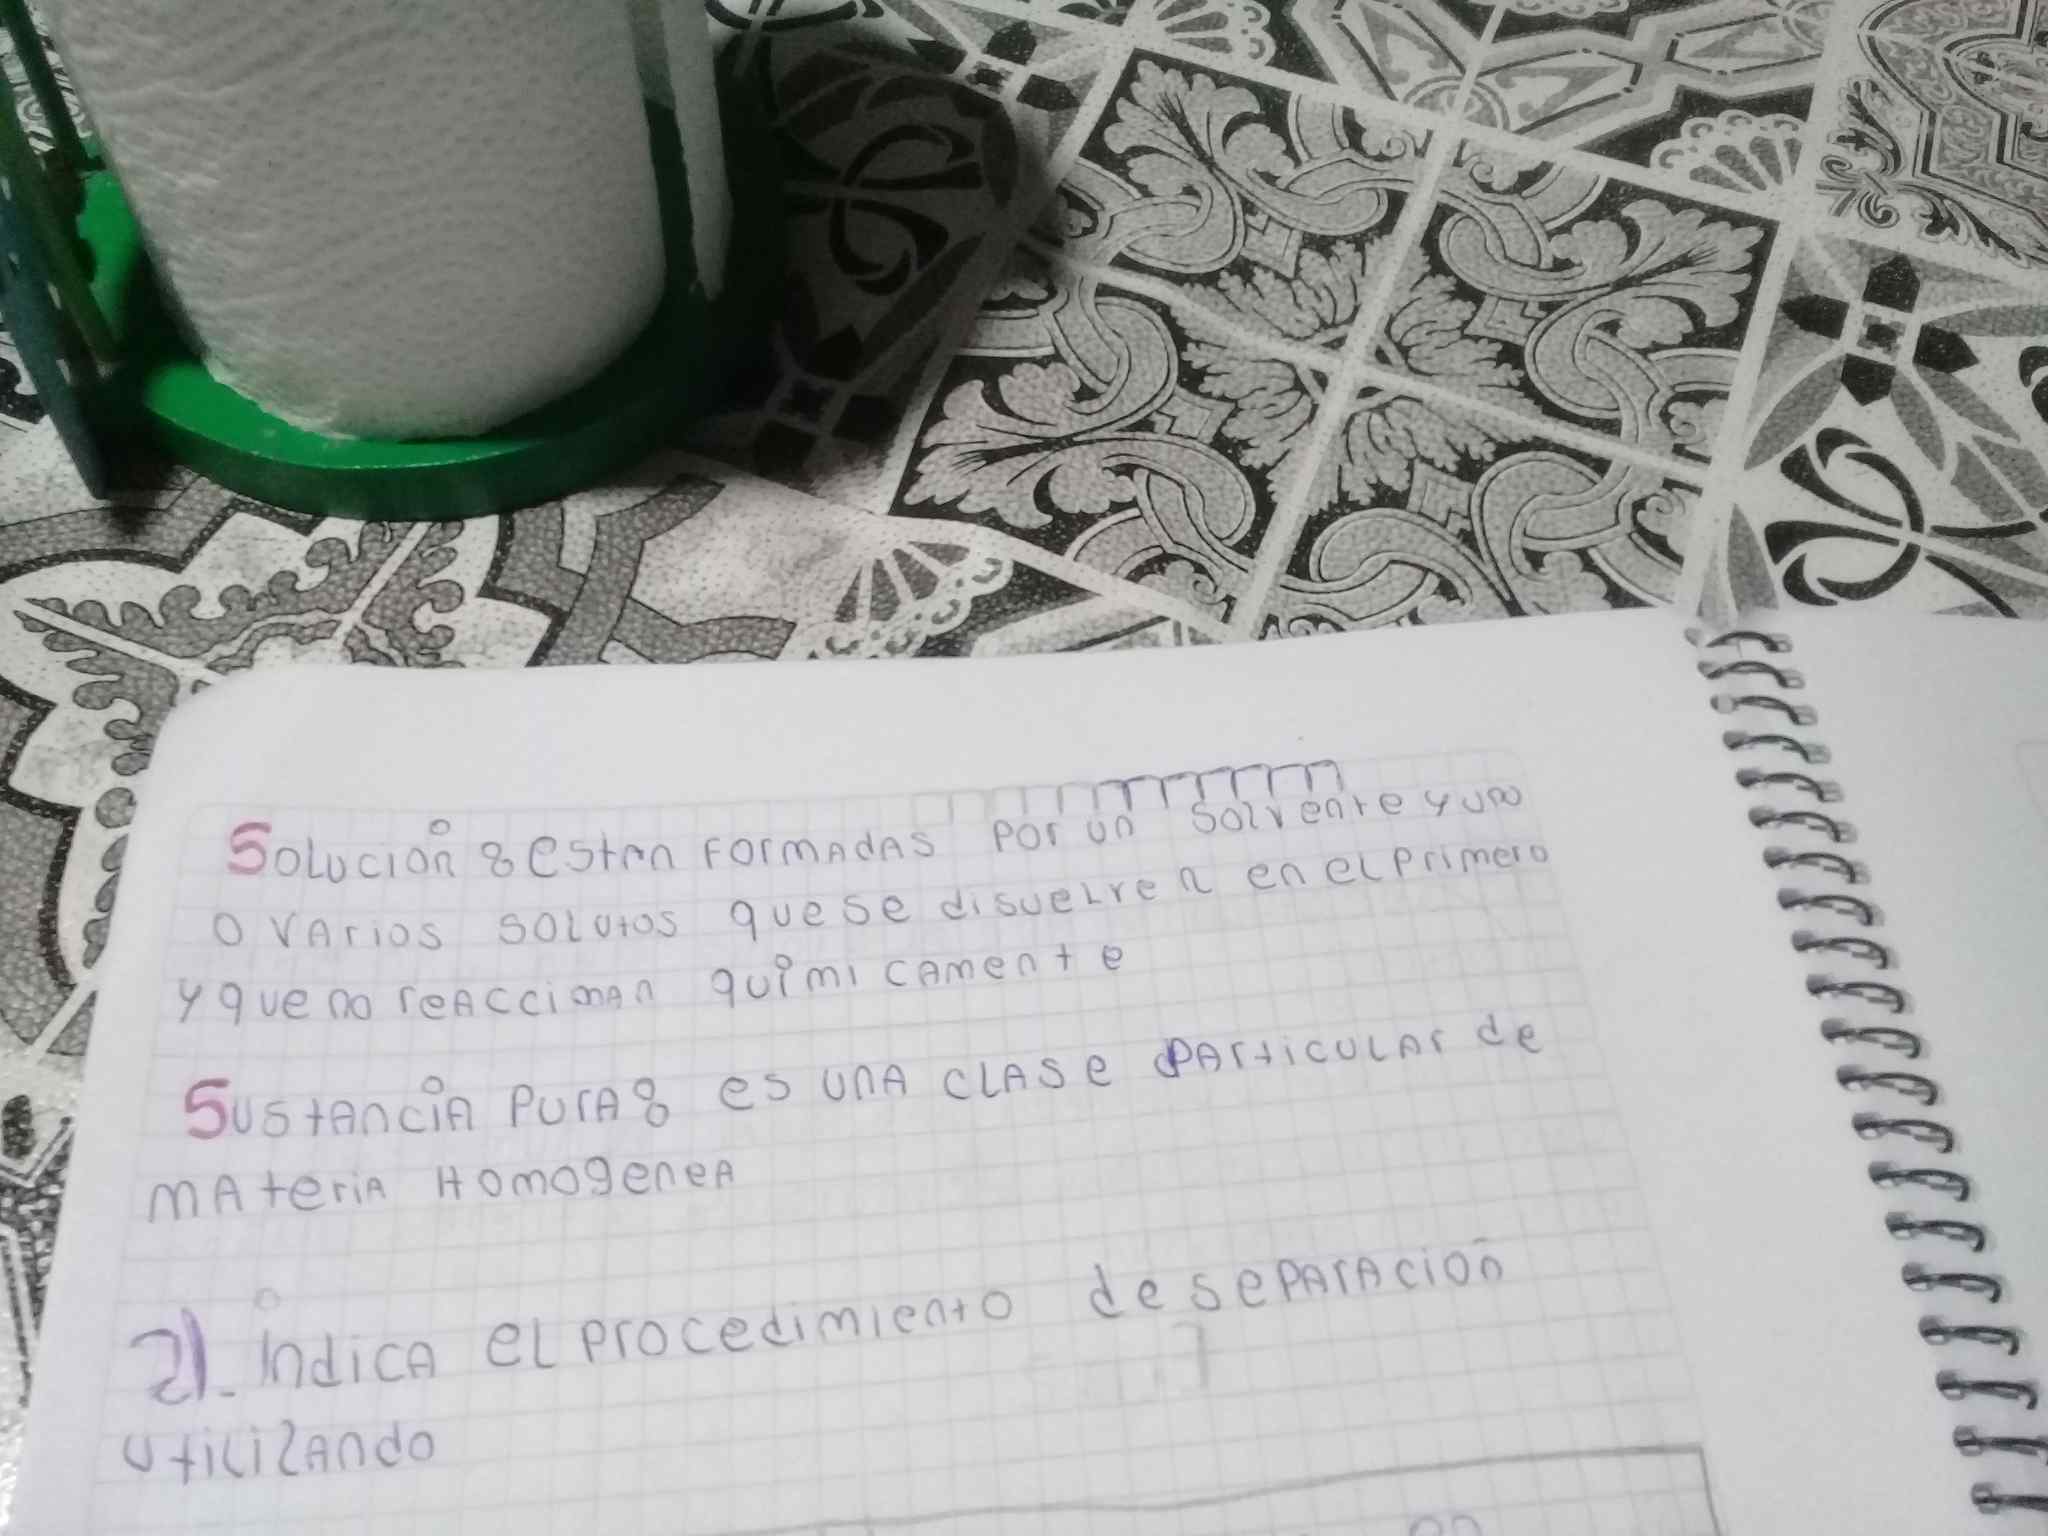 Solución: estan formadas por un solvente y uno
o varios solutos que se disuelven en el primero
y que no reaccionan químicamente
Sustancia pura: es una clase particular de
materia Homogenea
2). indica el procedimiento de separación
utilizando